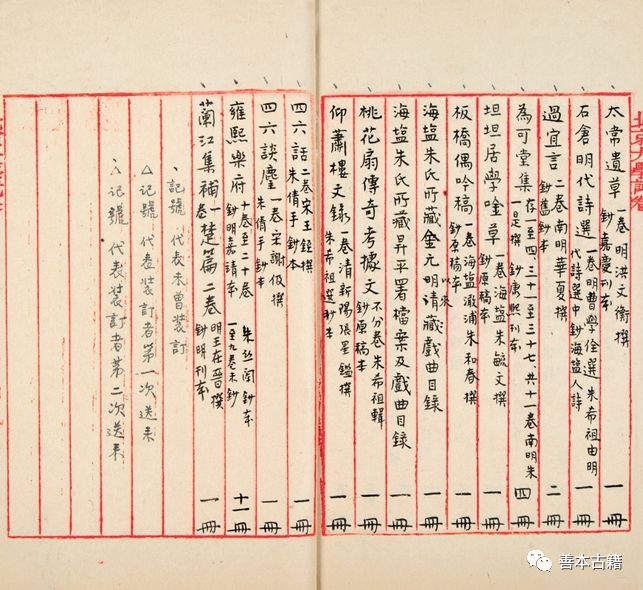 太常遺草 一卷明洪文衡撰 鈔嘉慶刊本 一冊
石倉明代詩選 一卷明曹學佺選朱希祖由明代詩選中鈔海盐人詩 一冊
過宜言 二卷南明華夏撰 鈔舊鈔本 二冊
為可堂集 存一至四三十一至三十七、共十一卷南明朱一是撰 鈔康熙刊本 四冊
坦坦居學唫草 一卷海盐朱敏文撰 鈔原稿本 一冊
板橋偶吟稿 一卷海盐澉浦朱和春撰 鈔原稿本 一冊
海盐朱氏所藏金元明清藏戲曲目錄 以來 一冊
海盐朱氏所藏昇平署檔案及戲曲目錄 一冊
桃花扇傳奇考據文 不分卷朱希祖輯 鈔原稿本 一冊
仰蕭樓文錄 一卷清新陽張星鑑撰 朱希祖選鈔本 一冊
四六話 二卷宋王銍撰 朱倩手鈔本 一冊
四六談麈 一卷宋謝伋撰 朱倩手鈔本 一冊
雍熙樂府 十卷至二十卷 鈔明嘉靖本 朱丝阑鈔本 一至九卷未鈔 十一冊
蘭江集補一卷楚篇二卷 明王在晉撰 鈔明刊本 一冊
、記號 代表未曾裝訂
△記號 代表裝訂者第一次送来
、△記號 代表裝訂者第二次送来
善本古籍